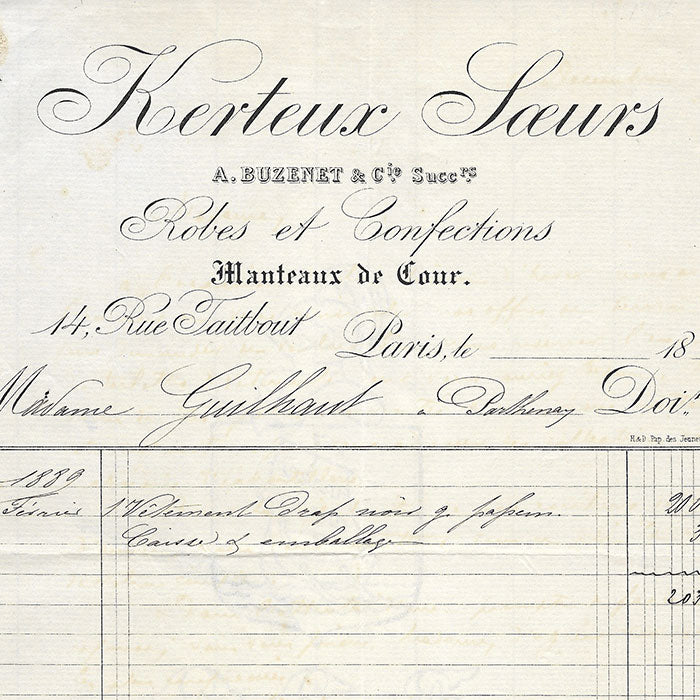 Kerteux Sœurs
A. BUZENET & Cie Succrs
Robes et Confections
Manteaux de Cour.
14, Rue Taitbout
Paris, le 18
Madame Guilhaut à Parthenay Doit
H & D Pap. des Jeune
1889
Février 1 Vêtement drap noir g. passem. 200
Caisse & emballage 3
203